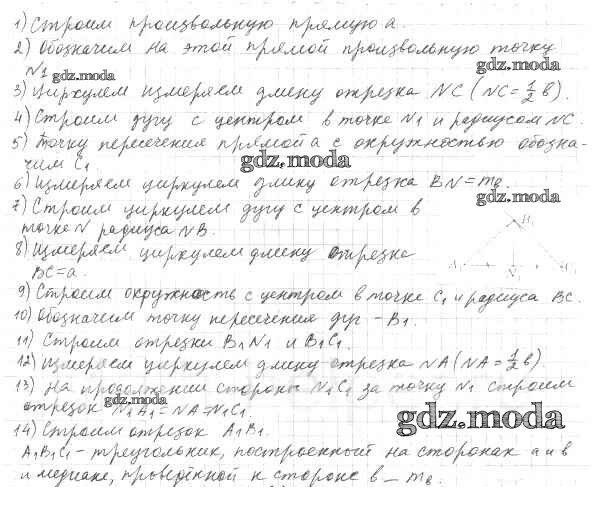 1) Строим произвольную прямую a.
2) Обозначим на этой прямой произвольную точку
N1
gdz.moda
gdz.moda
3) Циркулем измеряем длину отрезка NC (NC = 1/2 b).
4) Строим дугу с центром в точке N1 и радиусом NC.
5) Точку пересечения прямой a с окружностью обозна-
чим C1
gdz.moda
6) Измеряем циркулем длину отрезка BN = mb.
gdz.moda
7) Строим циркулем дугу с центром в
точке N радиуса NB.
8) Измеряем циркулем длину отрезка
BC = a.
B1
A1
N1
C1
9) Строим окружность с центром в точке C1 и радиуса BC.
10) Обозначим точку пересечения дуг - B1.
11) Строим отрезки B1N1 и B1C1.
12) Измеряем циркулем длину отрезка NA (NA = 1/2 b).
13) На продолжении стороны N1C1 за точку N1 строим
gdz.moda
отрезок N1A1 = NA = N1C1.
gdz.moda
14) Строим отрезок A1B1.
A1B1C1 - треугольник, построенный на сторонах a и b
и медиане, проведённой к стороне b - mb.